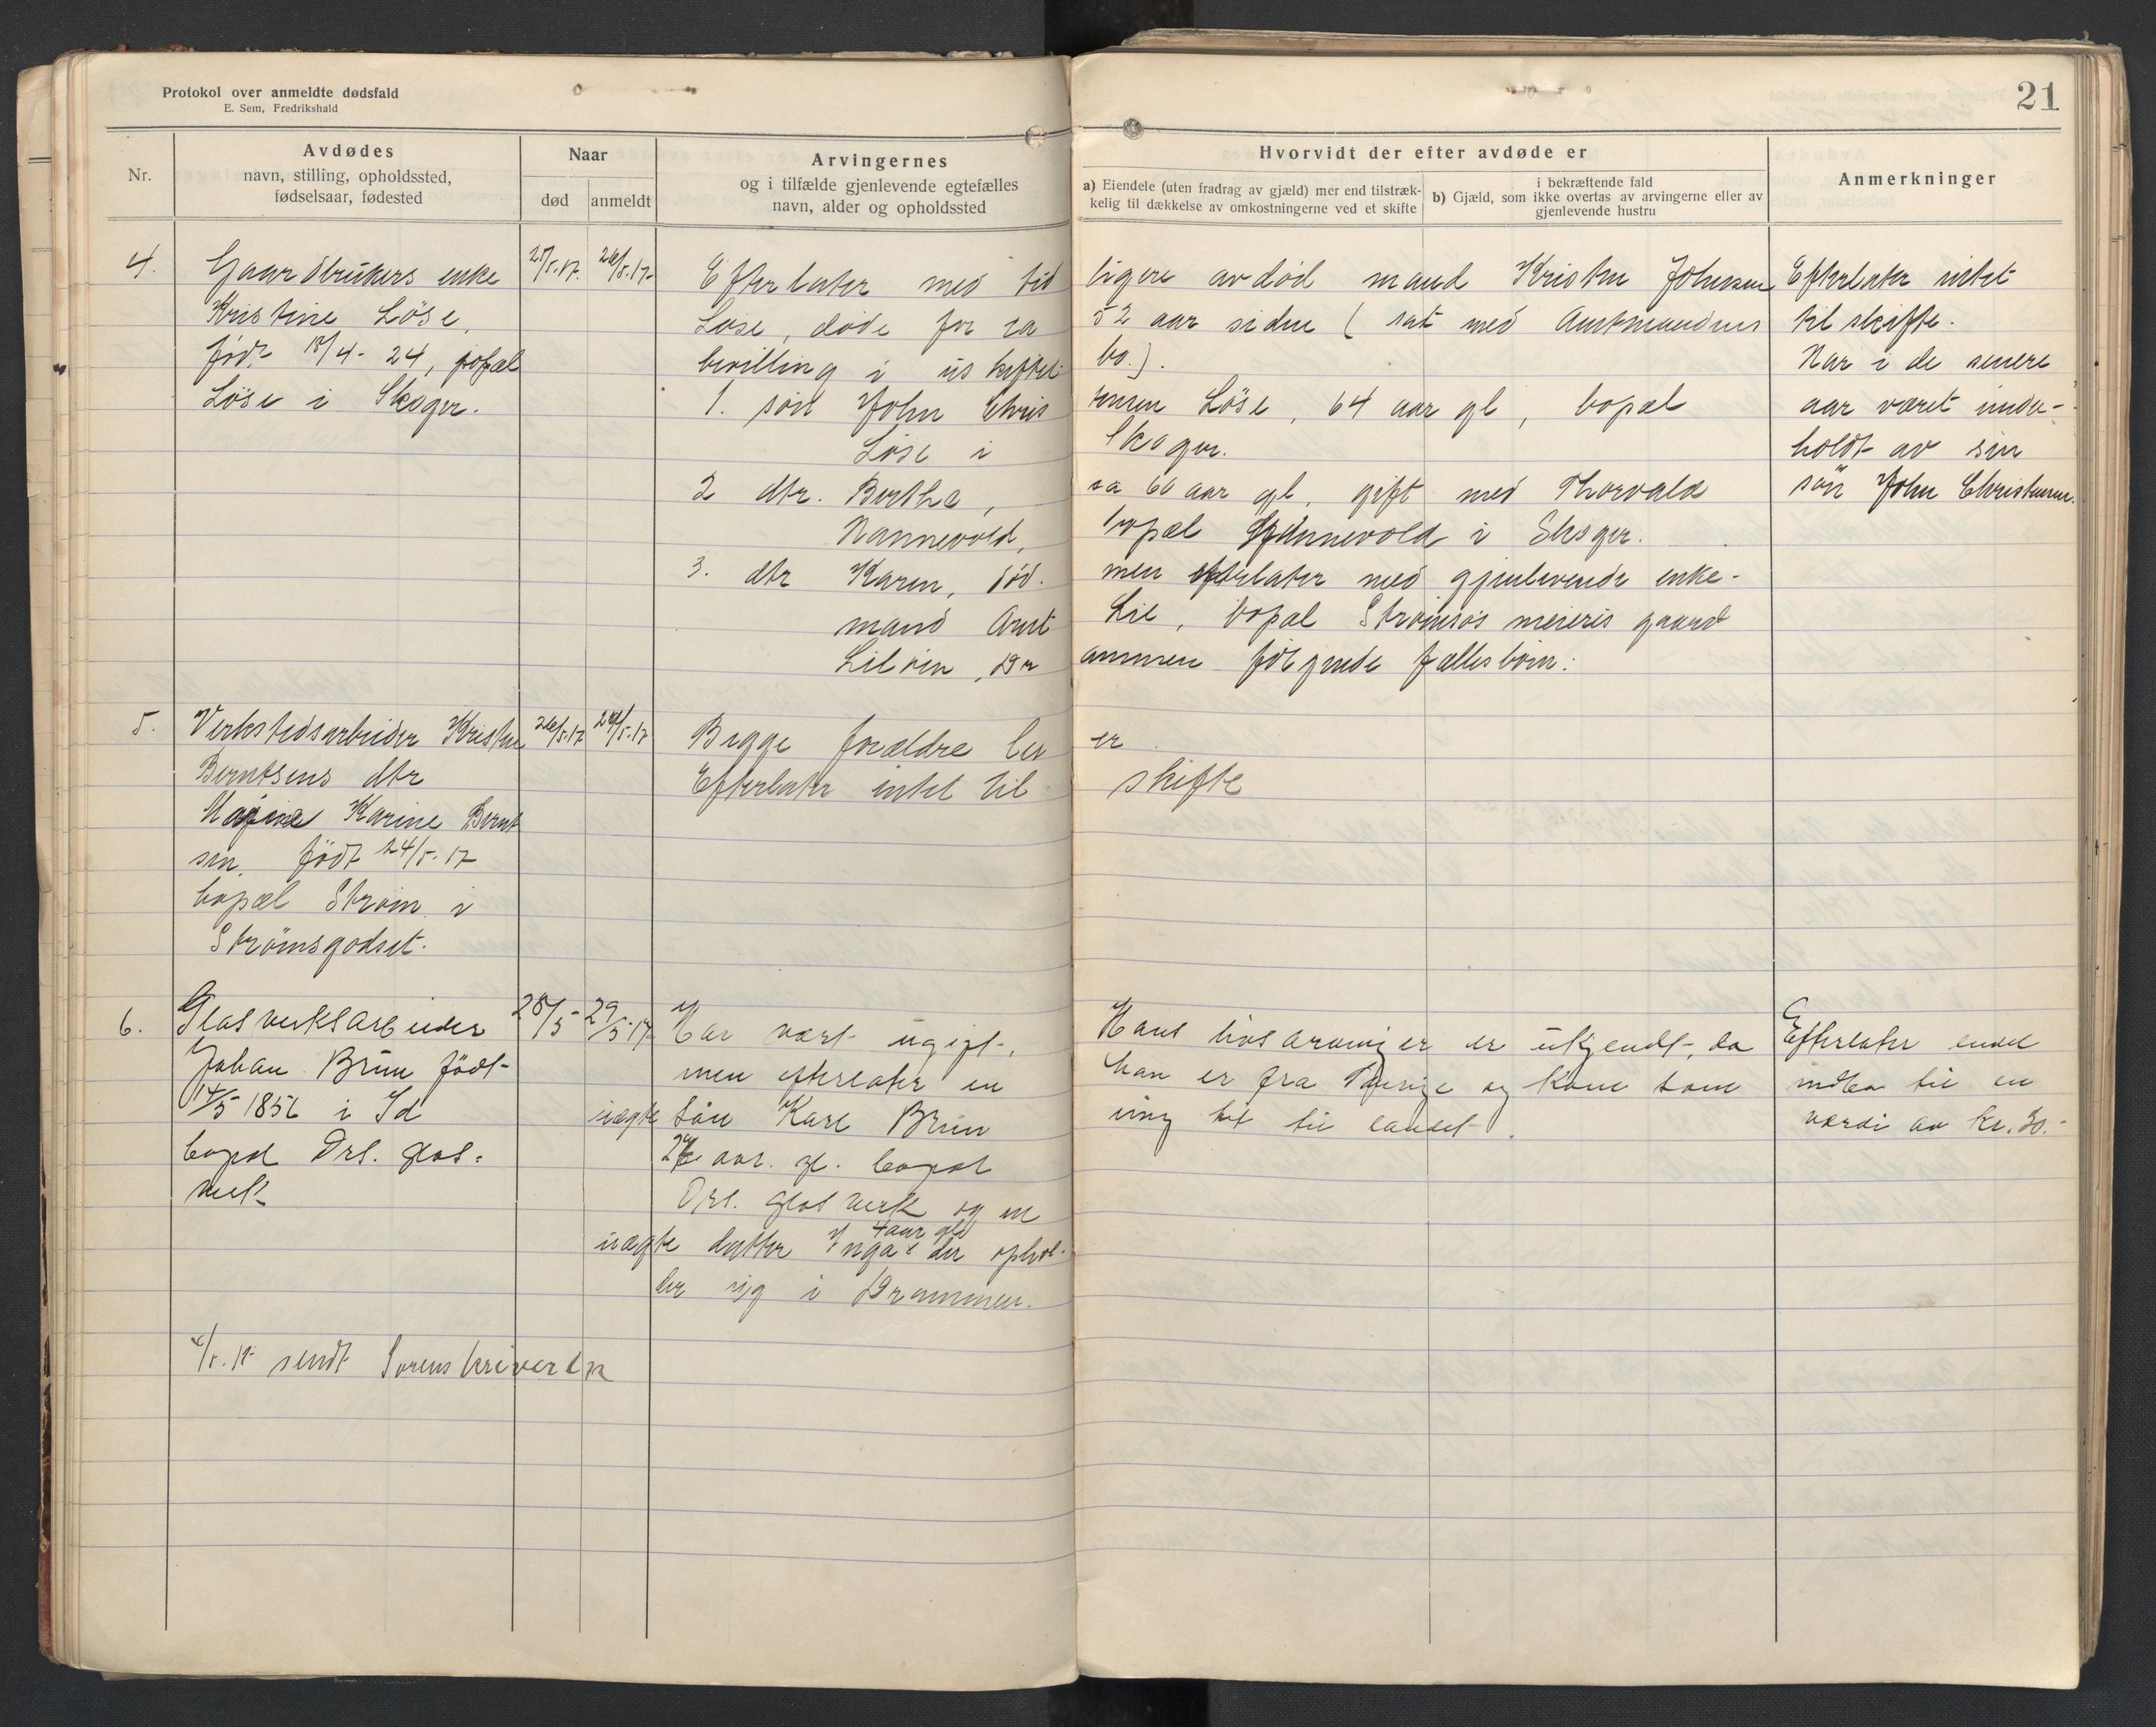 Protokol over anmeldte dødsfald
E. Sem, Fredrikshald
21
Nr.
Avdødes
navn, stilling, opholdssted,
fødselsaar, fødested
Naar
død
anmeldt
Arvingernes
og i tilfælde gjenlevende egtefælles
navn, alder og opholdssted
Hvorvidt der efter avdøde er
a) Eiendele (uten fradrag av gjæld) mer end tilstræk-
kelig til dækkelse av omkostningerne ved et skifte
b) Gjæld, som i bekræftende fald
ikke overtas av arvingerne eller av
gjenlevende hustru
Anmerkninger
4.
Gaardbrukers enke
Kristine Löse,
født 18/4- 24, bopæl
Löse i Skoger.
25/5.17.
26/5.17-
Efterlater med tid ligere avdöd mand Kristen Johnsen
Löse, döde for ca 52 aar siden ( sat med Amtmandens
bevilling i uskiftet bo.).
1. sön John Christensen Löse, 64 aar gl, bopæl
Löse i Skoger.
2 dtr. Bertha, ca 60 aar gl, gift med Thorvald
Nannevold, bopæl Nannevold i Skoger.
3. dtr Karen, död. men efterlater med gjenlevende enke-
mand Arnt Lie, bopæl Strömsös meieris gaard
Lilöen, Drammen följende fællesbörn:
Efterlater intet
til skifte.
Har i de senere
aar været under-
holdt av sin
sön John Christensen.
5.
Verkstedsarbeider Kristen
Berntsens dtr
Karine Bernt
sen. födt 24/5-17
bopæl Ström i
Strömsgodset.
26/5.17
29/5.17
Begge forældre lever
Efterlater intet til skifte
6.
Glasverksarbeider
Johan Brun födt-
14/5 1856 i Id
bopæl Drs. glas-
verk
28/5-
29/5-17
Har vært ugift,
men efterlater en
uægte sön Karl Brun
aar. gl. bopæl
Drs. glasverk og en
4 aar gl
uægte datter Inga der ophol-
der sig i Drammen.
Hans livsarvinger er ukjendt, da
han er fra Sverige og kom som
ung hit til landet.
Efterlater endel
indbo til en
værdi av kr. 30.-
4/5.17 sendt Sorenskriveren